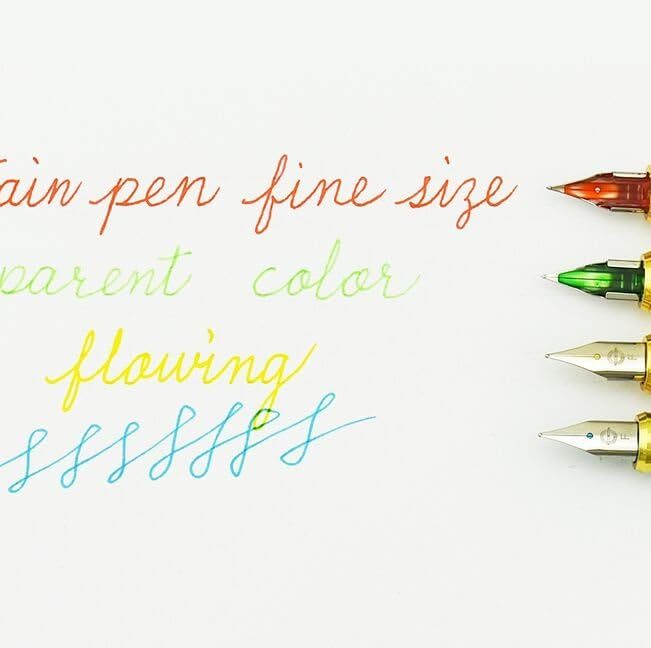 tain pen fine size
parent color
flowing
F
F